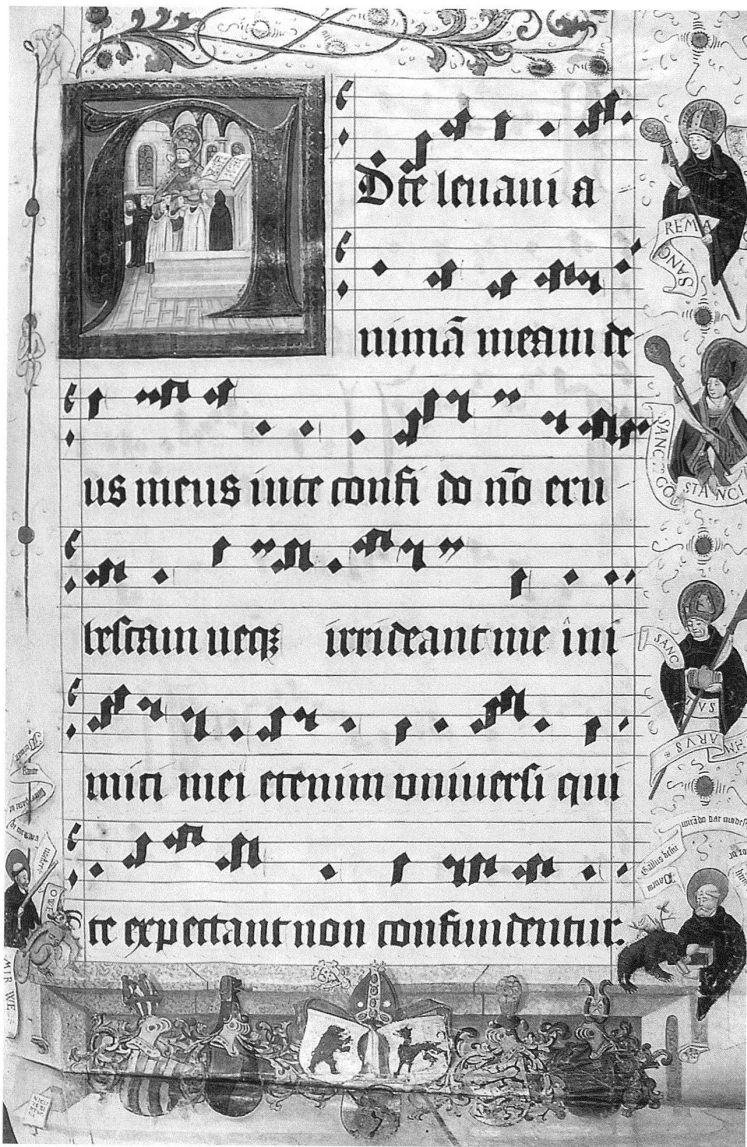 A
D te leuaui a
nimā meam de
us meus in te confi do nō eru
bescam neqꝫ irrideant me ini
mici mei etenim vniuersi qui
te expectant non confundentur.
SANC REMA
SANC GO STANCI
SANC VS MARVS
MIR WE
OWE